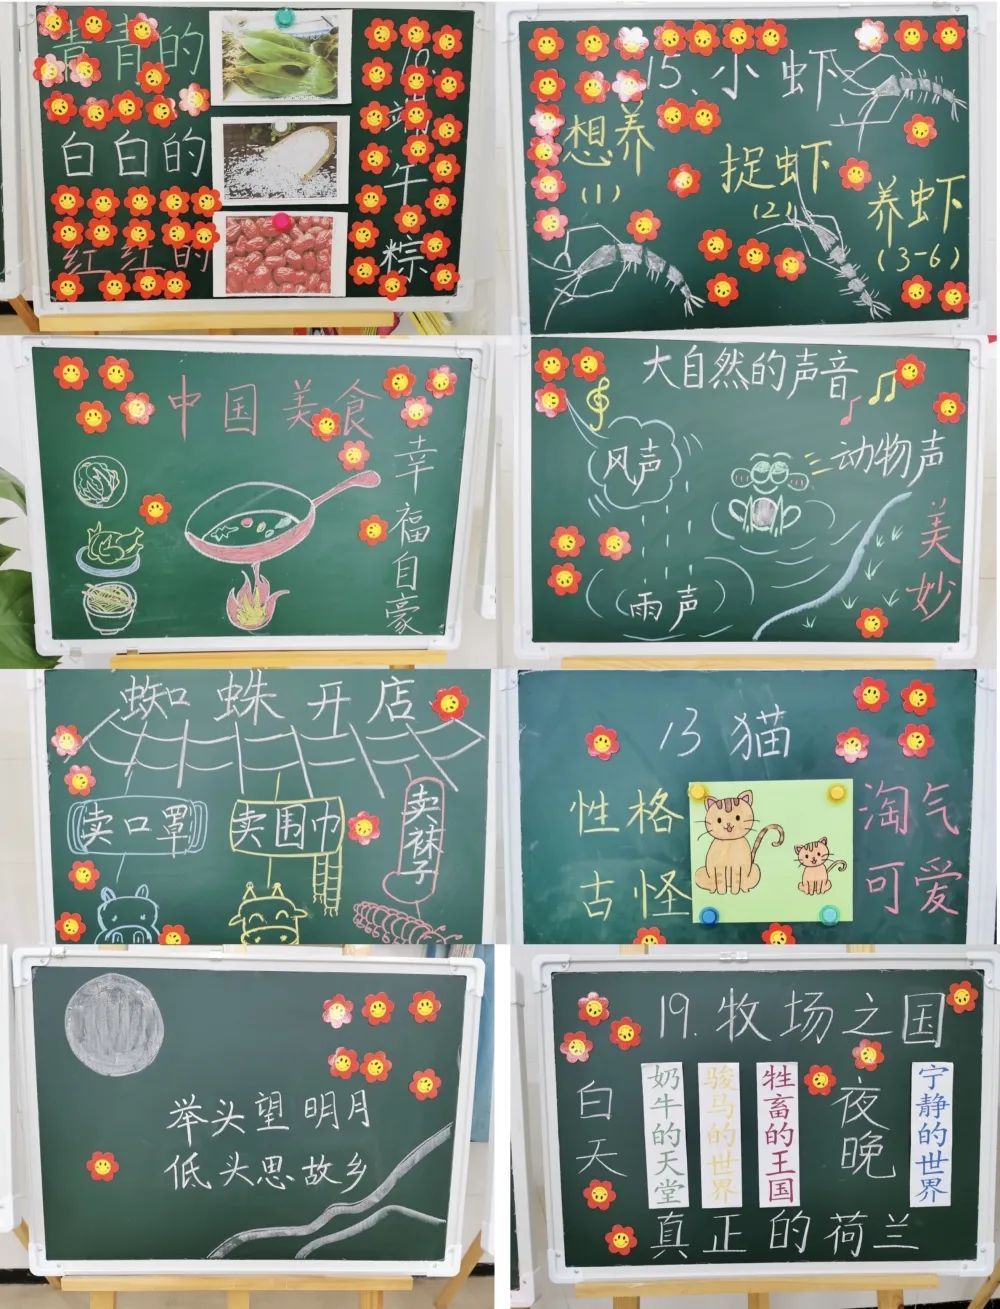 青青的
白白的
红红的
10
端
午
粽
15、小虾
想养
(1)
捉虾
(2)
养虾
(3-6)
中国美食
幸
福
自
豪
大自然的声音
风声
动物声
雨声
美
妙
蜘蛛开店
卖口罩
卖围巾
卖袜子
13 猫
性格
古怪
淘气
可爱
举头望明月
低头思故乡
19.牧场之国
白天
奶牛的天堂
骏马的世界
牲畜的王国
夜晚
宁静的世界
真正的荷兰